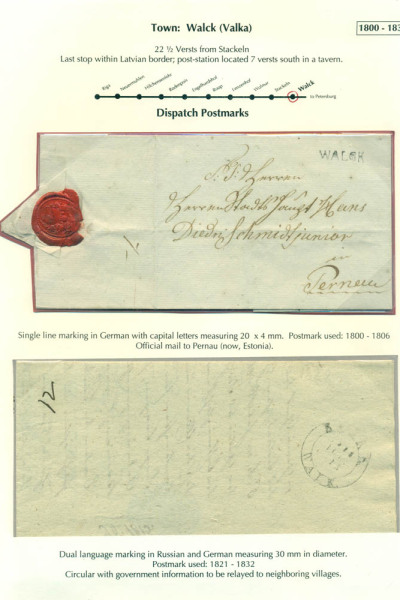 Town: Walck (Valka)
1800 - 183
22 ½ Versts from Stackeln
Last stop within Latvian border; post-station located 7 versts south in a tavern.
Riga
Engelhardshof
Roop
Stackeln
Walck
to Petersburg
Dispatch Postmarks
WALCK
Diedr. Schmidt junior
in
Pernau
Single line marking in German with capital letters measuring 20 x 4 mm. Postmark used: 1800 - 1806
Official mail to Pernau (now, Estonia).
12
WALK
Dual language marking in Russian and German measuring 30 mm in diameter.
Postmark used: 1821 - 1832
Circular with government information to be relayed to neighboring villages.